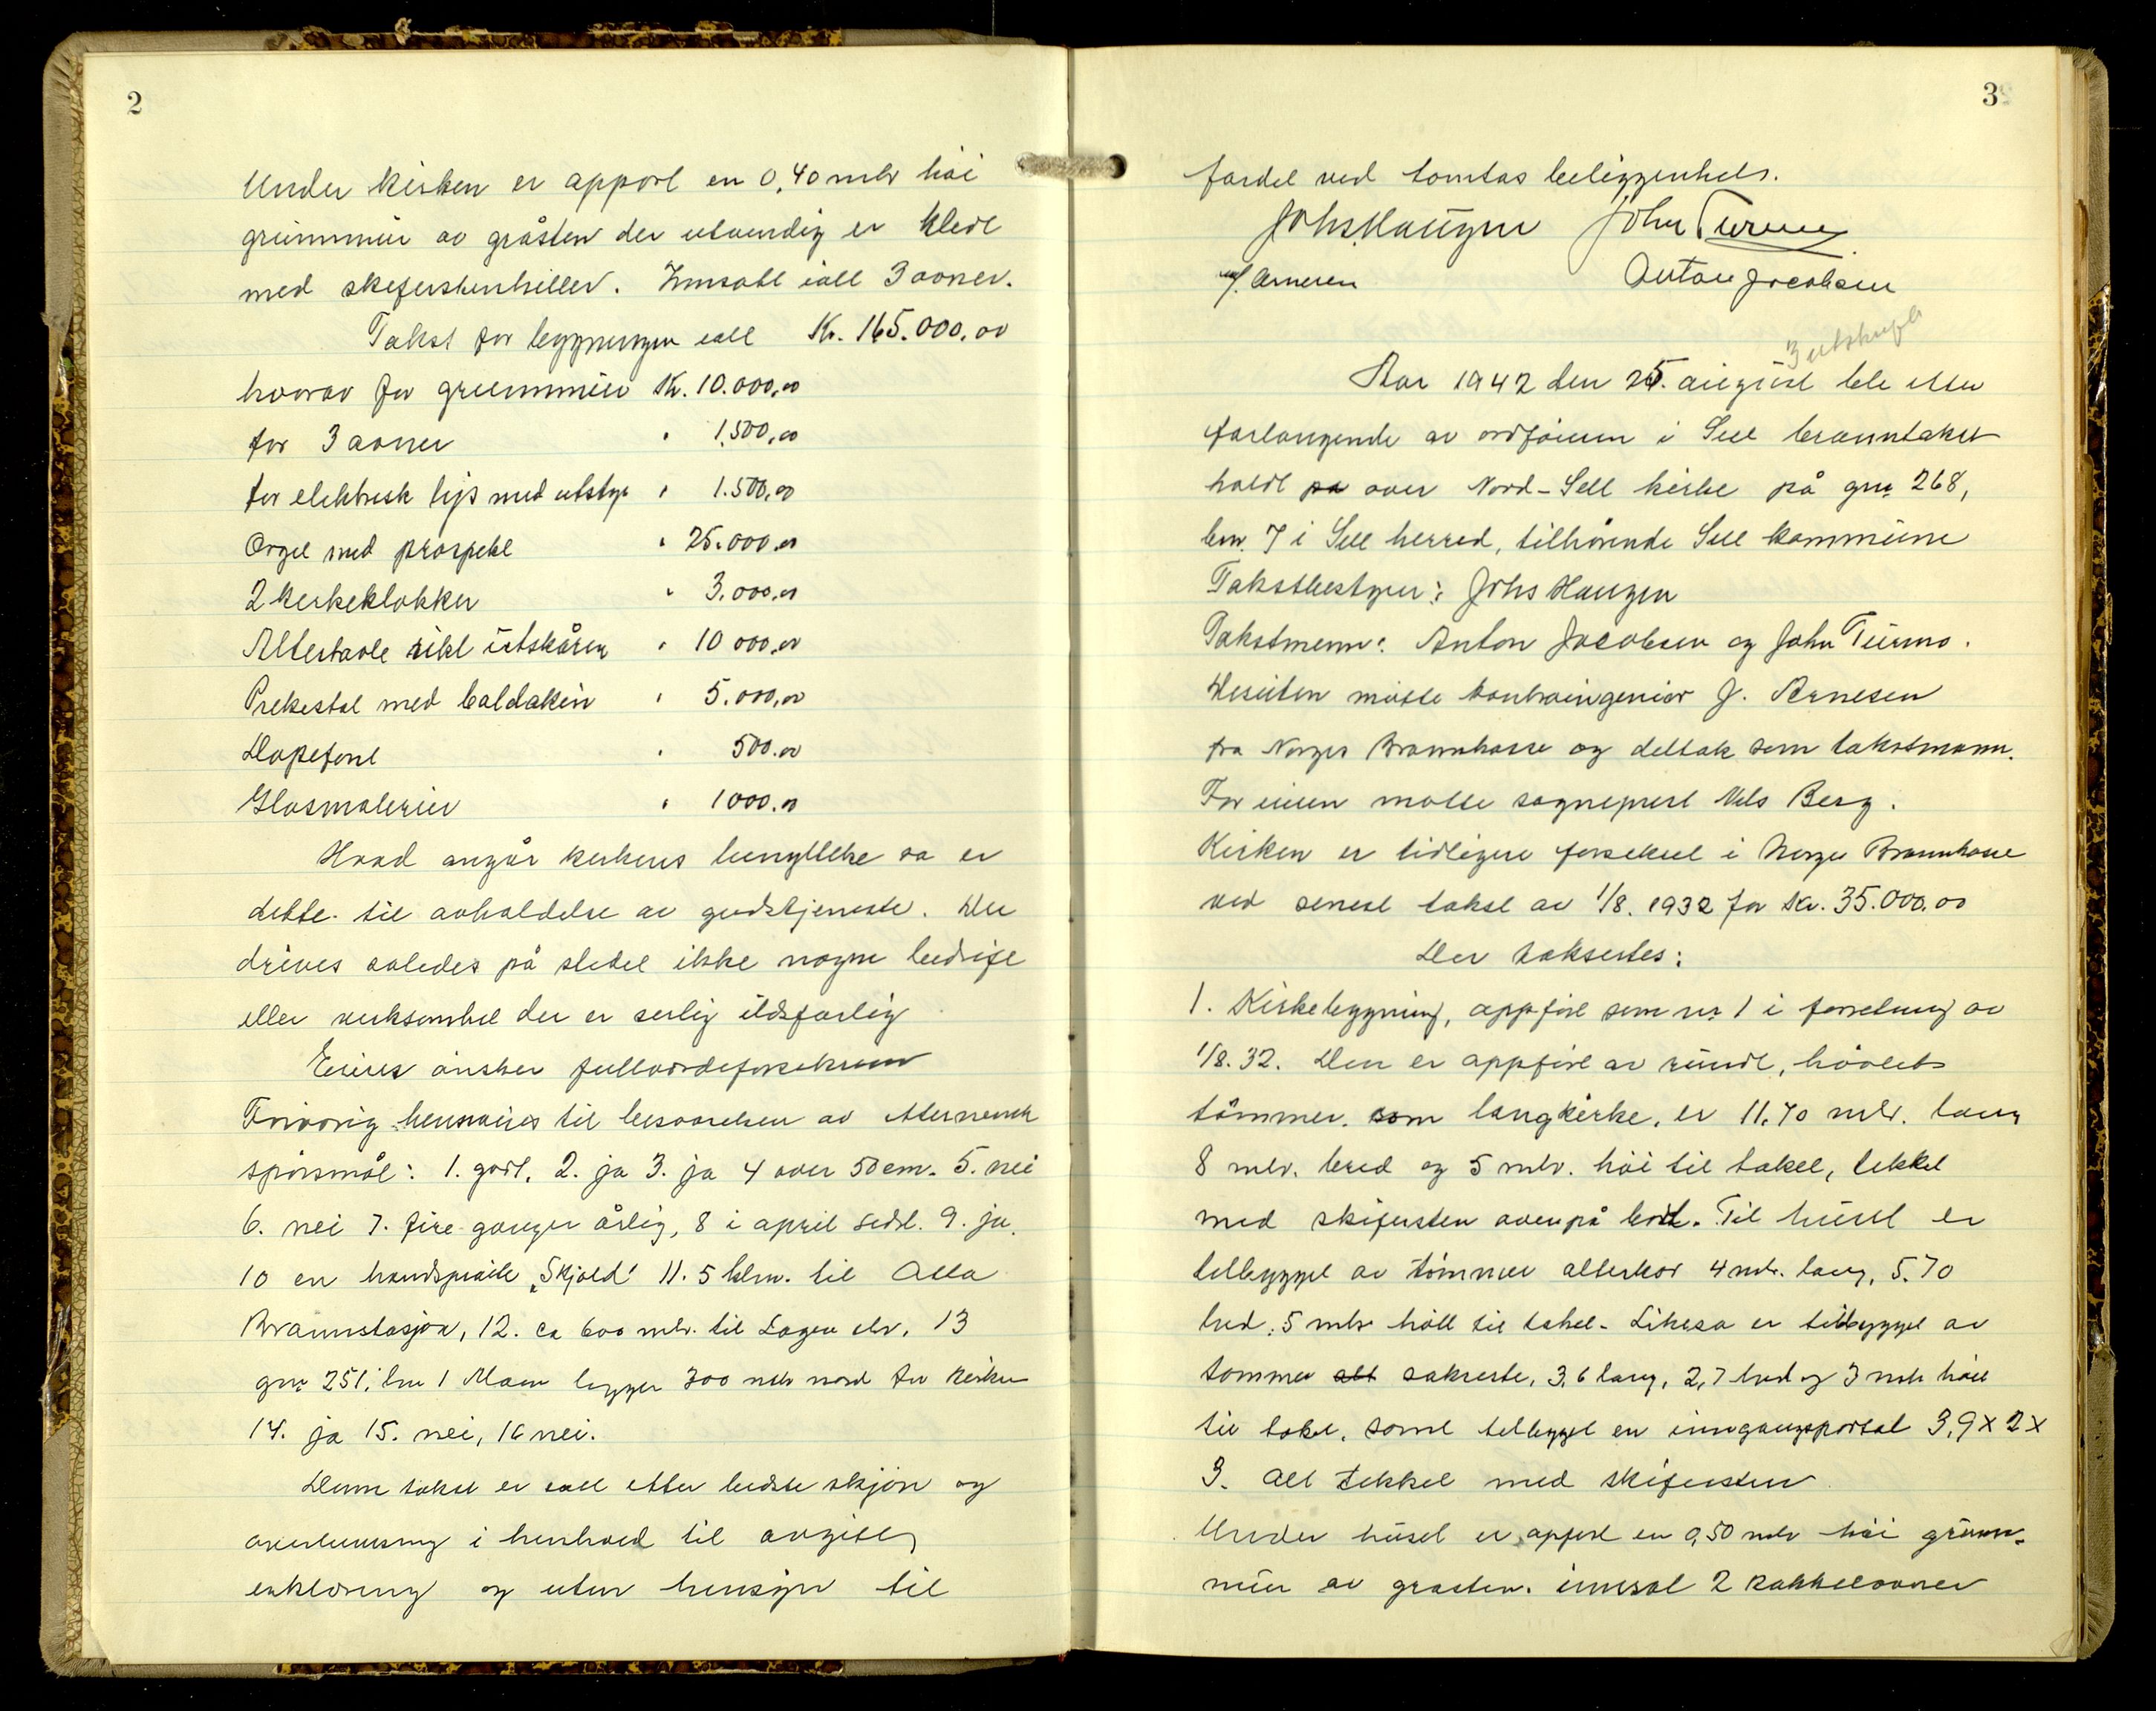 2
Under kirken er appört en 0,40 mtr höi
grunnmur av gråsten der utvendig er kledt
med skeferstenheller. Innsatt ialt 3 ovner.
Takst for bygningen ialt Kr. 165.000,00
hvorav for grunnmur Kr. 10.000,00
for 3 ovner " 1.500,00
for elektrisk lys med utstyr " 1.500,00
Orgel med prospekt " 25.000,00
2 kirkeklokker " 3.000,00
Altertavle rikt utskåren " 10 000,00
Prekestol med baldakin " 5.000,00
Döpefont " 500.00
Glasmalerier " 1000.00
Hvad angår kirkens benyttelse sa er
dette til avholdelse av gudstjeneste. Der
drives saledes på stedet ikke nogen bedrift
eller verksomhet der er serlig ildsfarlig
Eieren önsker fullverdeforsikring
Forövrig henvises til besvarelsen av etternevnte
spörsmål: 1. godt, 2. ja 3. ja 4 over 50 cm. 5. nei
6. nei 7. fire ganger årlig, 8 i april sidst. 9. ja.
10 en handspröite „Skjold" 11. 5 klm. til Otta
Brannstasjon, 12. ca 600 mtr. til Lågen elv. 13
gnr 251, bnr 1 Moen bygger 300 mtr nord for kirken
14. ja 15. nei, 16 nei.
Denne takst er satt etter bedste skjön og
overbevisning i henhold til avgitt
erklæring og uten hensyn til
3
fordel ved tomtas beliggenhets.
Johs. Haugen John Turmo
J. Arnesen Anton Jacobsen
3 utskrift
Aar 1942 den 25. august ble etter
forlangende av ordföreren i Sell branntakst
holdt pa over Nord-Sell kirke på gnr 268,
bnr. 7 i Sell herred, tilhörende Sell kommune
Takstbestyrer: Johs Haugen
Takstmenn: Anton Jacobsen og John Turmo.
Desuten mötte kontrolingeniör J. Arnesen
fra Norges Brannkasse og deltok som takstmann.
For eieren mötte sogneprest Nils Berg.
Kirken er tidligere forsikret i Norges Brannkasse
ved senest takst av 1/8. 1932 for Kr. 35.000.00
Der takseres:
1. Kirkebygning, oppfört som nr 1 i forretning av
1/8. 32. Den er oppfört av rundt, hövlet
tömmer. som langkirke, er 11.70 mtr. lang
8 mtr. bred og 5 mtr. höi til taket, tekket
med skifersten ovenpå bord. Til huset er
tilbygget av tömmer alterkor 4 mtr. lang, 5.70
bred, 5 mtr höit til taket. Likesa er tilbygget av
tömmer alt sakreste, 3,6 lang, 2,7 bred og 3 mtr höit
til taket, samt tilbygget en inngangsportal 3,9 x 2 x
3. Alt tekket med skifersten
Under huset er oppfört en 0,50 mtr höi grunn-
mur av gråsten. innsat 2 kakkelovner